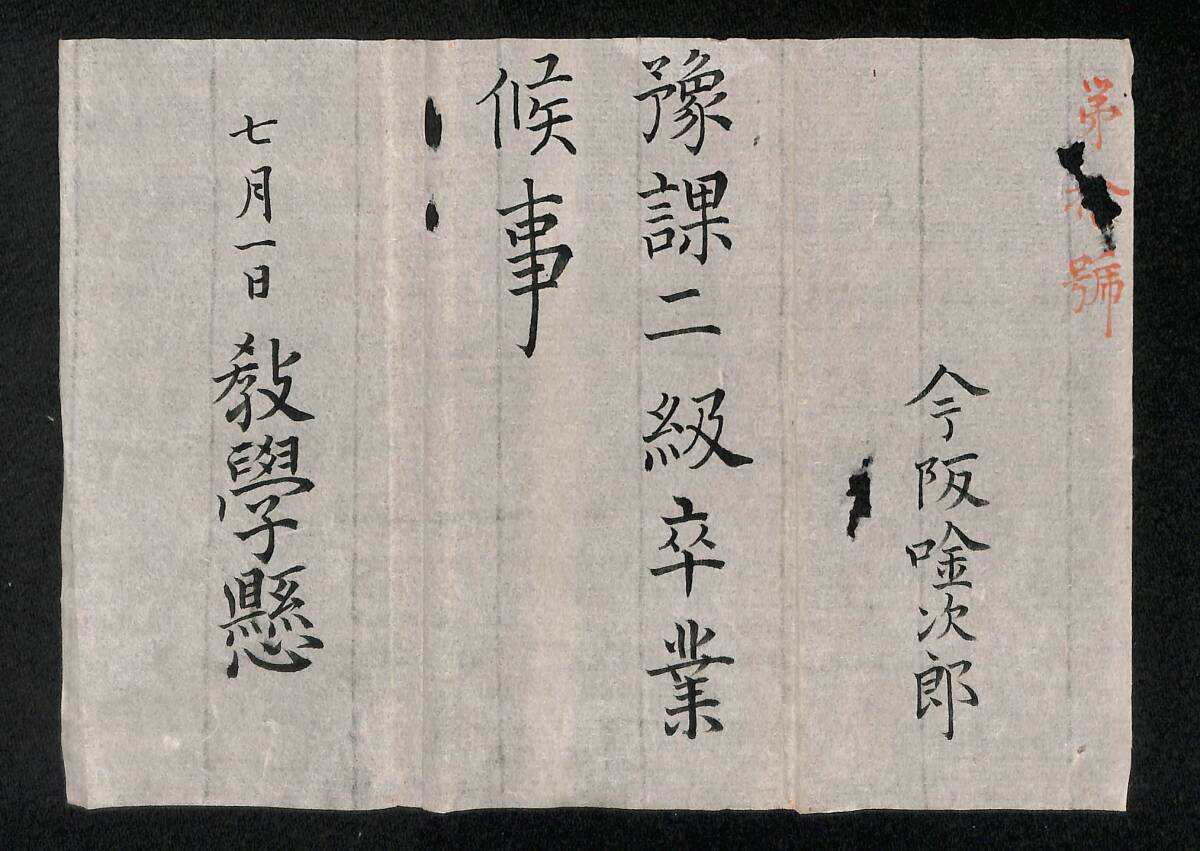 第號
今阪唫次郎
豫課二級卒業
候事
七月一日 敎學懸